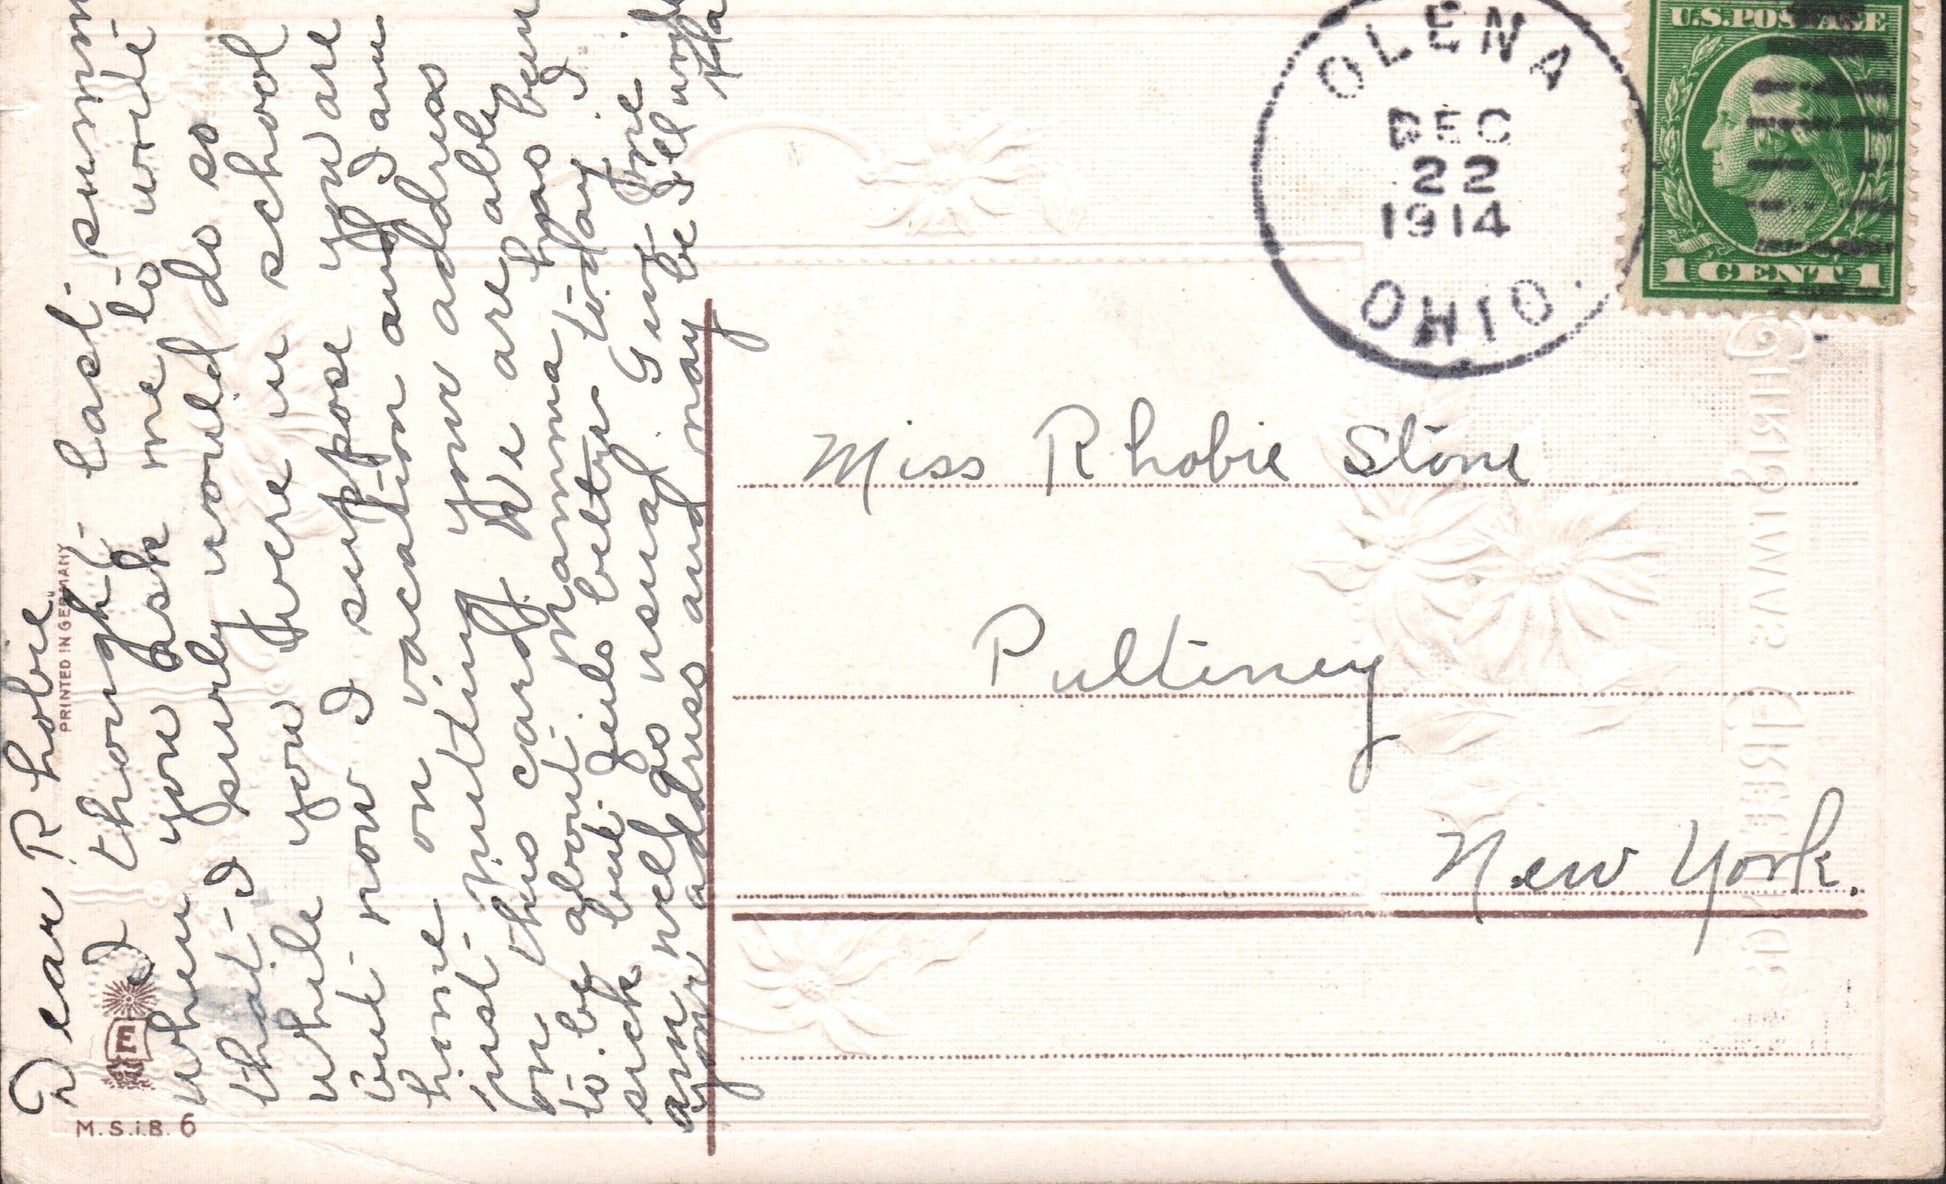 Dear Rhobie
I thought last summ
when you ask me to write
that I surly would do so
while you were in school
but now I suppose you are
home on vacation and I am
just putting your address
on this card. We are able
to be about. Mamma has been
sick but feels better today. I
am well as usual. Give me
your address and may be I'll
Ida
PRINTED IN GERMANY
M.S.i.B. 6
OLENA
DEC
22
1914
OHIO.
U.S.POSTAGE
1 CENT 1
Miss Rhobie Stone
Pulteney
New York.
CHRISTMAS
GREETINGS